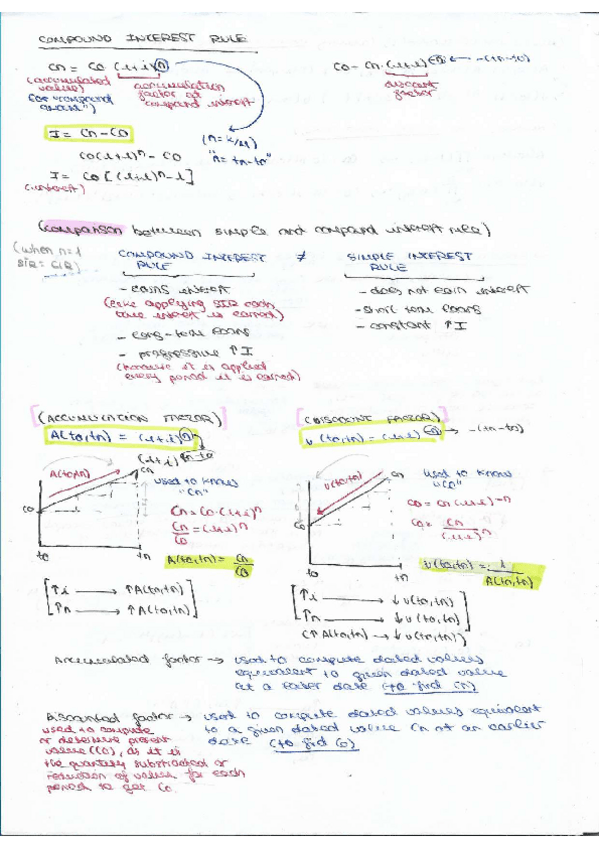 COMPOUND INTEREST RULE
Cn = C0 (1+i)^n
C0 = Cn · (1+i)^-n ← -(tn-t0)
(accumulated value)
(or "compound amount")
accumulation factor at compound interest
discount factor
I = Cn - C0
(n = k/m)
"n = tn - t0"
C0(1+i)^n - C0
I = C0 [(1+i)^n - 1]
(interest)
(comparison between simple and compound interest rule)
(when n=1
SIR = CIR)
COMPOUND INTEREST RULE ≠ SIMPLE INTEREST RULE
- earns interest
(like applying SIR each time interest is earned)
- long-term loans
- progressive ↑I
(because it is applied every period it is earned)
- does not earn interest
- short term loans
- constant ↑I
(ACCUMULATION FACTOR)
A(t0,tn) = (1+i)^n
(1+i)^tn-t0
A(t0,tn)
Cn
C0
t0
tn
used to know "Cn"
Cn = C0 · (1+i)^n
Cn/C0 = (1+i)^n
A(t0,tn) = Cn/C0
[↑i → ↑A(t0,tn)
↑n → ↑A(t0,tn)]
(DISCOUNT FACTOR)
v(t0,tn) = (1+i)^-n → -(tn-t0)
v(t0,tn)
Cn
C0
t0
tn
used to know "C0"
C0 = Cn (1+i)^-n
C0 = Cn/(1+i)^n
v(t0,tn) = 1/A(t0,tn)
[↑i → ↓v(t0,tn)
↑n → ↓v(t0,tn)
(↑A(t0,tn) → ↓v(t0,tn))]
Accumulated factor → used to compute dated values
equivalent to given dated value
at a later date (to find Cn)
Discounted factor → used to compute dated values equivalent
to a given dated value Cn at an earlier
date (to find C0)
used to compute
or determine present
value (C0), as it is
the quantity substracted or
reduction of values for each
period to get C0.